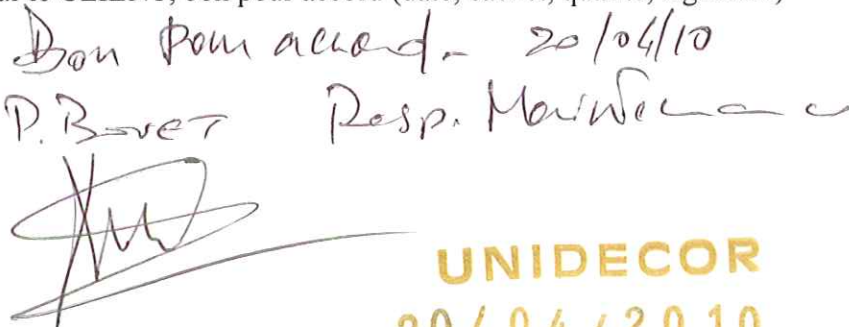 Bon pour accord - 20/04/10
P. Bovet Resp. Maintenance
UNIDECOR
20/04/2010